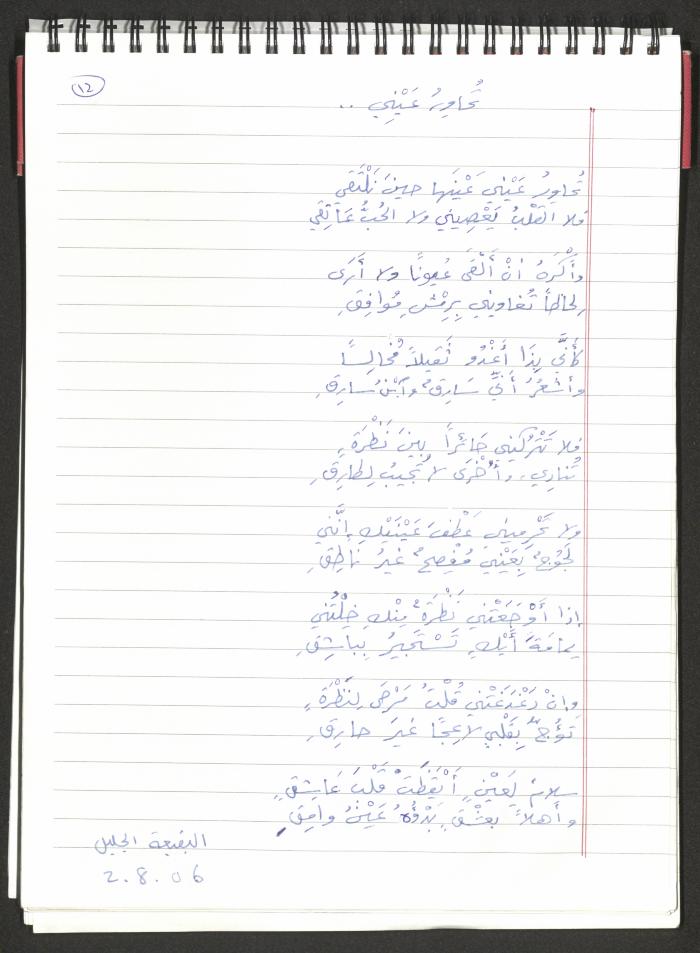 ١٢
تُحَاوِرُ عَيْنِي ..
تُحَاوِرُ عَيْنِي عَيْنَها حينَ نَلْتَقي
فلا القَلْبُ يَعْصِيني ولا الحُبُّ عَائِقي
وأَكْرَهُ أنْ أَلْقَى عُيونًا ولا أَرَى
لِحاظاً تُغاويني بِرِمْشٍ مُوافِقِ
كَأَنِّي بِذَا أَغْدُو ثَقيلاً مُخالِسًا
وأَشْعُرُ أَنِّي سَارِقٌ وَابْنُ سارِقِ
فلا تَتْرُكيني حَائِراً بينَ نَظْرَةٍ
تُنادِي، وأُخْرَى لا تُجيبُ لِطارِقِ
ولا تَحْرِميني عَطْفَ عَيْنَيْكِ إنَّني
لَجُوجٌ بِعَيْني مُفْصِحٌ غيرُ نَاطِقِ
إذا أَوْجَعَتْني نَظْرَةٌ مِنْكِ خِلْتُني
يمامَةَ أَيْكٍ تَسْتَجيرُ بِباشِقِ
وإنْ دَغْدَغَتْني قُلْتُ مَرْحَى لِنَظْرَةٍ
تَؤُجُّ بِقَلْبي لاعِجًا غيرَ حارِقِ
سلامٌ لِعَيْنٍ أَيْقَظَتْ قَلْبَ عَاشِقٍ
وأَهلاً بعِشْقٍ بَدْؤُهُ عَيْنُ وامِقِ
البقيعة الجليل
2.8.06